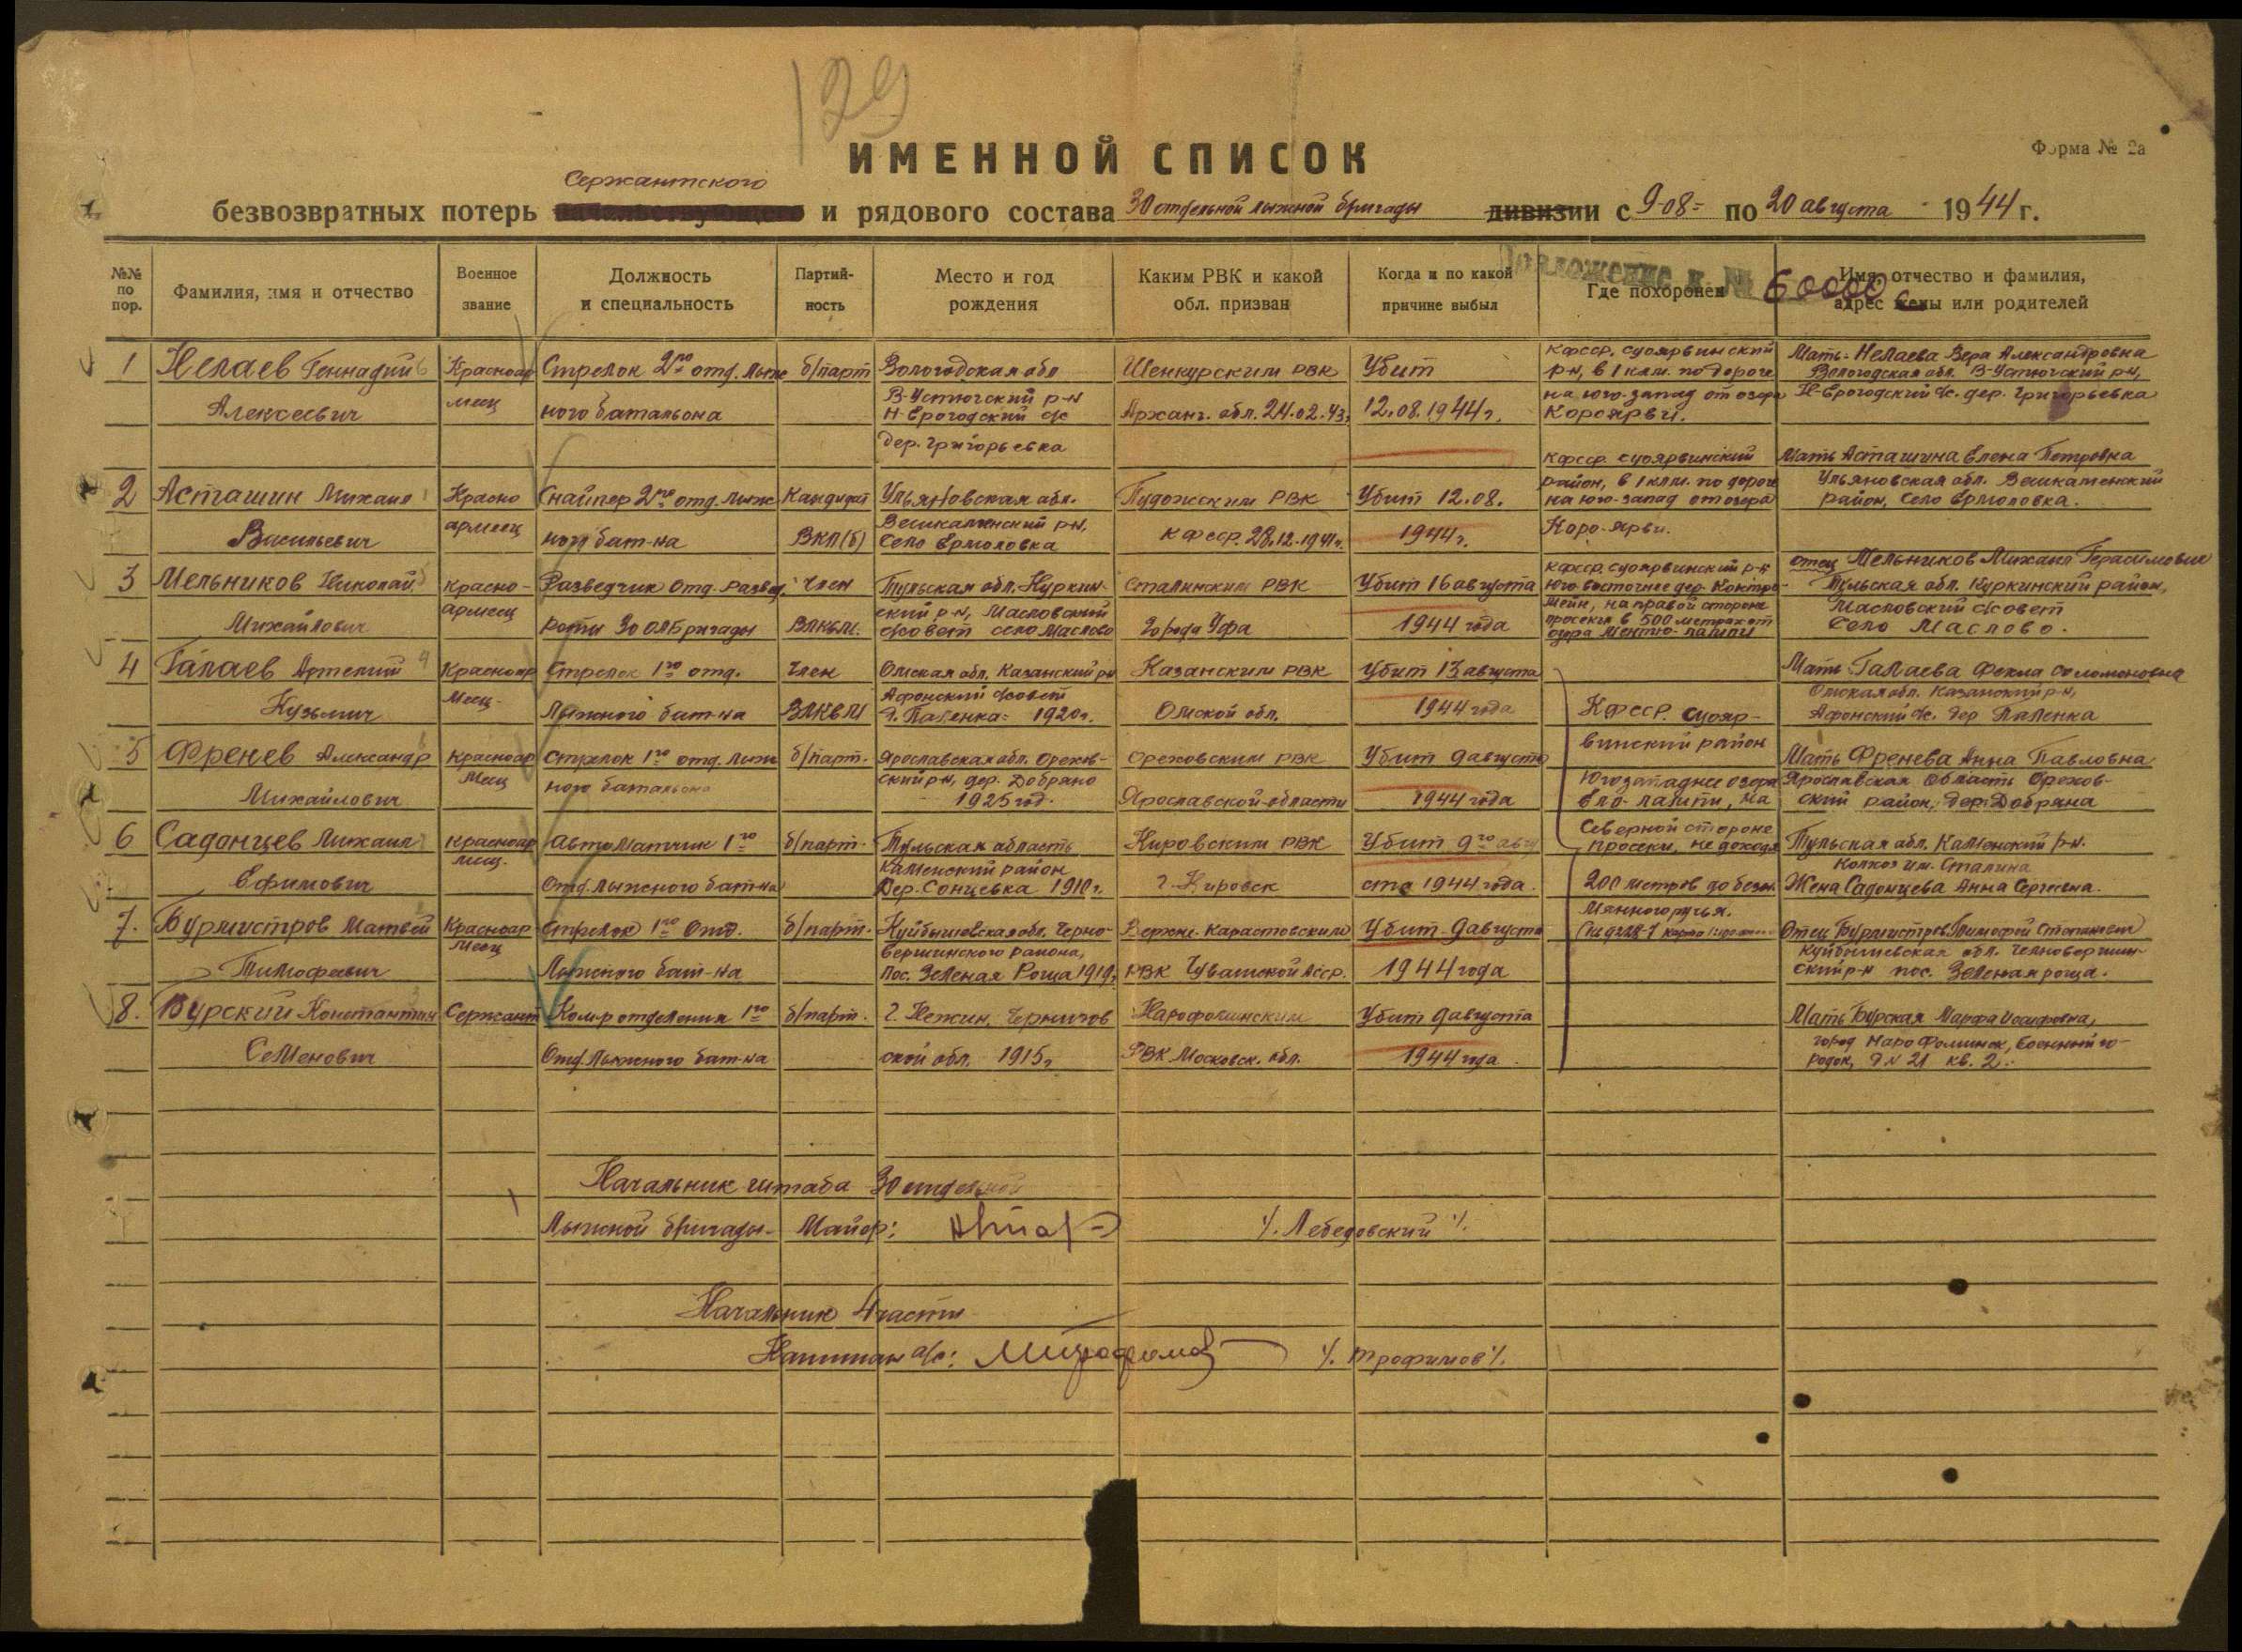 129
ИМЕННОЙ СПИСОК
Форма № 2а
Сержантского
безвозвратных потерь начальствующего и рядового состава 30 отдельной лыжной бригады дивизии с 9-08- по 20 августа 1944 г.
Приложение к № 60000с
№№ по пор.
Фамилия, имя и отчество
Военное звание
Должность и специальность
Партий-ность
Место и год рождения
Каким РВК и какой обл. призван
Когда и по какой причине выбыл
Где похоронен
Имя, отчество и фамилия, адрес жены или родителей
1
Нелаев Геннадий
Алексеевич
Красноар
меец
Стрелок 2го отд. лыж
ного батальона
б/парт
Вологодская обл
В-Устюгский р-н
Н-Ерогодский с/с
дер. Григорьевка
Шенкурским РВК
Арханг. обл. 24.02.43г
Убит
12.08.1944г.
КФССР. Суоярвинский
р-н, в 1 клм. по дороге
на юго-запад от озера
Короярви.
Мать-Нелаева Вера Александровна
Вологодская обл. В-Устюгский р-н,
Н-Ерогодский с/с. дер. Григорьевка
2
Асташин Михаил
Васильевич
Красно
армеец
Снайпер 2го отд. лыж
ного бат-на
Кандидат
ВКП(б)
Ульяновская обл.
Вешкаменский р-н,
Село Ермоловка
Пудожским РВК
КФССР. 28.12.1941г.
Убит 12.08.
1944г.
КФССР. Суоярвинский
район, в 1 клм. по дороге
на юго-запад от озера
Коро-ярви.
Мать Асташина Елена Петровна
Ульяновская обл. Вешкаменский
район, Село Ермоловка.
3
Мельников Николай
Михайлович
Красно-
армеец
Разведчик отд. развед.
роты 30 ОЛБригады
Член
ВЛКСМ.
Тульская обл. Куркин-
ский р-н, Масловский
с/совет село Маслово
Сталинским РВК
города Уфа
Убит 16 августа
1944 года
КФССР. Суоярвинский р-н
юго-восточнее дер.
на правой стороне
просеки в 500 метрах от
озера
отец Мельников Михаил Герасимович
Тульская обл. Куркинский район,
Масловский с/совет
Село Маслово.
4
Галаев Артемий
Кузьмич
Красноар
меец-
Стрелок 1го отд.
лыжного бат-на
Член
ВЛКСМ
Омская обл. Казанский р-н
Афонский с/совет
д. Паленка- 1920г.
Казанским РВК
Омской обл.
Убит 13 августа
1944 года
КФССР. Суояр-
винский район
Югозападнее озера
Ело-лампи, на
Северной стороне
просеки, не доходя
200 метров до безы-
мянного ручья.
Мать Галаева Фекла Соломоновна
Омская обл. Казанский р-н,
Афонский с/с. дер Паленка
5
Френев Александр
Михайлович
Красноар
меец
Стрелок 1го отд. лыж
ного батальона
б/парт.
Ярославская обл. Орехов-
ский р-н, дер. Добряно
1925 год.
Ореховским РВК
Ярославской области
Убит 9 августа
1944 года
Мать Френева Анна Павловна
Ярославская область Орехов-
ский район, дер. Добряна
6
Садонцев Михаил
Ефимович
Красноар
меец.
Автоматчик 1го
Отд. лыжного бат-на
б/парт.
Тульская область
Каменский район
Дер. Сонцевка 1910г.
Кировским РВК
г. Кировск
Убит 9го авгу
ста 1944 года.
Тульская обл. Каменский р-н.
Колхоз им. Сталина
Жена Садонцева Анна Сергеевна.
7.
Бурмистров Матвей
Тимофеевич
Красноар
меец
Стрелок 1го Отд.
Лыжного бат-на
б/парт.
Куйбышевская обл. Черно-
вершинского района,
пос. Зеленая Роща 1919г.
РВК Чувашской АССР.
Убит 9 августа
1944 года
Отец Бурмистров Тимофей Степанович
Куйбышевская обл. Челновершин-
ский р-н пос. Зеленая роща.
8.
Бурский Константин
Семенович
Сержант
Ком-р отделения 1го
Отд. Лыжного бат-на
б/парт.
г. Нежин, Чернигов
ской обл. 1915г
Нарофоминским
РВК Московск. обл.
Убит 9 августа
1944 года.
Мать Бурская Марфа Иосифовна,
город Наро Фоминск, Военный го-
родок, д. № 21 кв. 2.
Начальник штаба 30 отдельной
Лыжной бригады- Майор: /. Лебедовский /.
Начальник 4 части
Капитан а/с: /. Трофимов /.